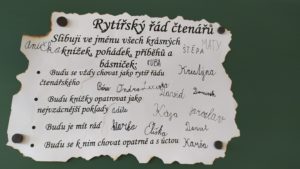 Rytířský řád čtenářů
Slibuji ve jménu všech krásných
knížek, pohádek, příběhů a
básniček:
anička
MATY
ŠTĚPA
KUBA
Kristýna
• Budu se vždy chovat jako rytíř řádu
čtenářského
David Dominik
• Budu knížky opatrovat jako
nejvzácnější poklady
Kája Jaroslav
• Budu je mít rád
Eliška
• Budu se k nim chovat opatrně a s úctou